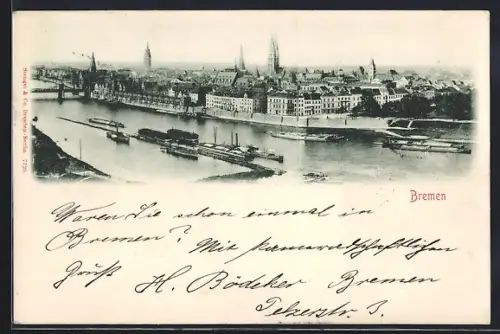 Stengel & Co. Dresden-Berlin. 7726
Bremen
Waren Sie schon einmal in
Bremen? Mit kameradschaftlichen
Gruß H. Bödeker Bremen
3.